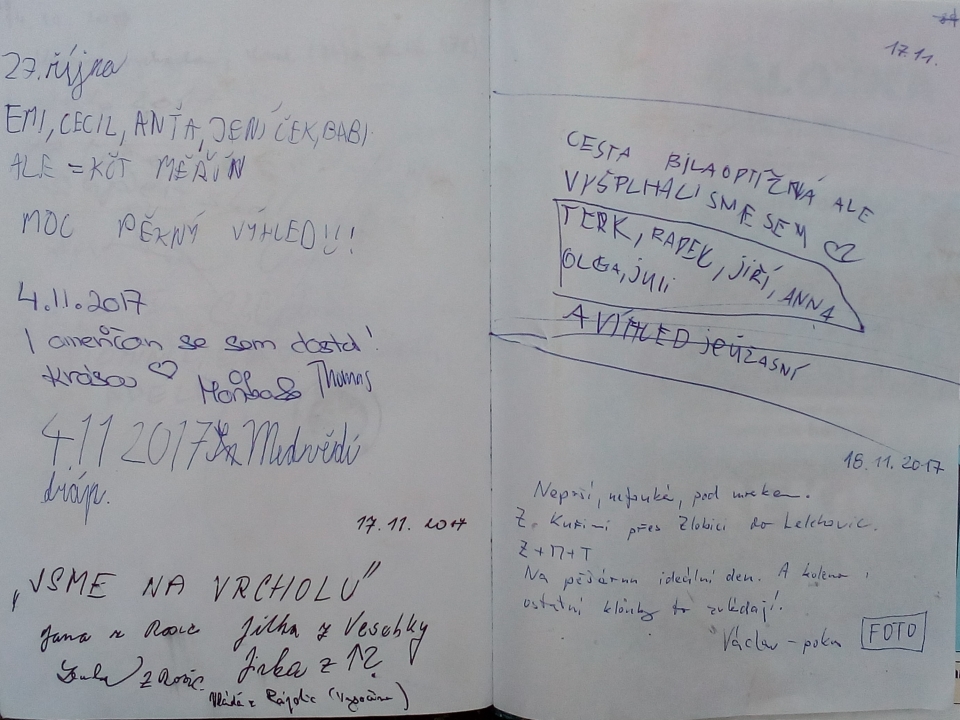 27. října
EMI, CECIL, ANŤA, JENÍČEK, BABI
ALE = KČT MĚŘÍN
MOC PĚKNÝ VÝHLED!!!
4.11.2017
I američan se sem dostal!
Krása ♡ Thomas
4.11 2017 Medvědí
dráp.
17.11. 2017
„VSME NA VRCHOLU"
Jana z Rosic Jitka z Veselky
Z ROSIC. Jirka z 1?
Vláďa z (Vysočina)
17.11.
CESTA BILA OPTÍŽNÁ ALE
VYŠPLHALI SME SEM ♡
TERK, RADEK, JIŘÍ, ANNA
OLGA, JULI
A VÍHLED JE ÚŽASNÍ
18.11.2017
Neprší, nefouká, pod mrakem.
Z Kuřimi přes Zlobici do Lelekovic.
Z+M+T
Na pěšárnu ideální den. A kolena i
ostatní klouby to zvládají!
Václav
FOTO